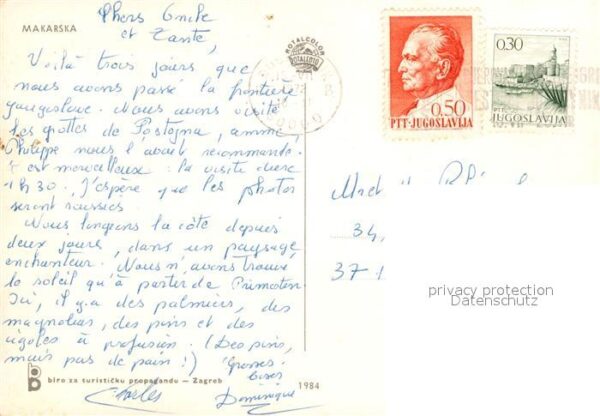 MAKARSKA
Chers Oncle
et Tante,
Voilà trois jours que
nous avons passé la frontière
yougoslave. Nous avons visité
les grottes de Postojna, comme
Philippe nous l'avait recommandé.
C'est merveilleux : la visite dure
1h30. J'espère que les photos
seront réussies.
Nous longeons la côte depuis
deux jours, dans un paysage
enchanteur. Nous n'avons trouvé
le soleil qu'à partir de Primosten
Ici, il y a des palmiers, des
magnolias, des pins et des
à profusion. (Des pins,
mais pas de pain !) Grosses
bises
Charles Dominique
biro za turističku propagandu — Zagreb
1984
ROTALCOLOR
ROTALFOTO
0.50
PTT-JUGOSLAVIJA
0,30
JUGOSLAVIJA
34,
37
privacy protection
Datenschutz